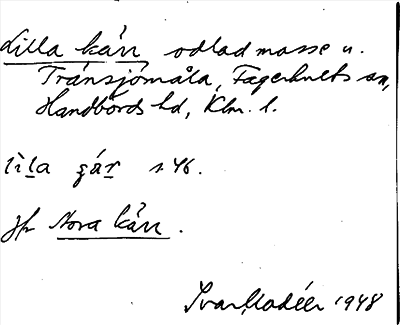 Lilla kärr odlad mosse u.
Transjömåla, Fagerhults sn,
Handbörds hd, Klm. l.
lìla ɕár s 46.
Jfr Norra kärr.
Ivar Modéer 1948